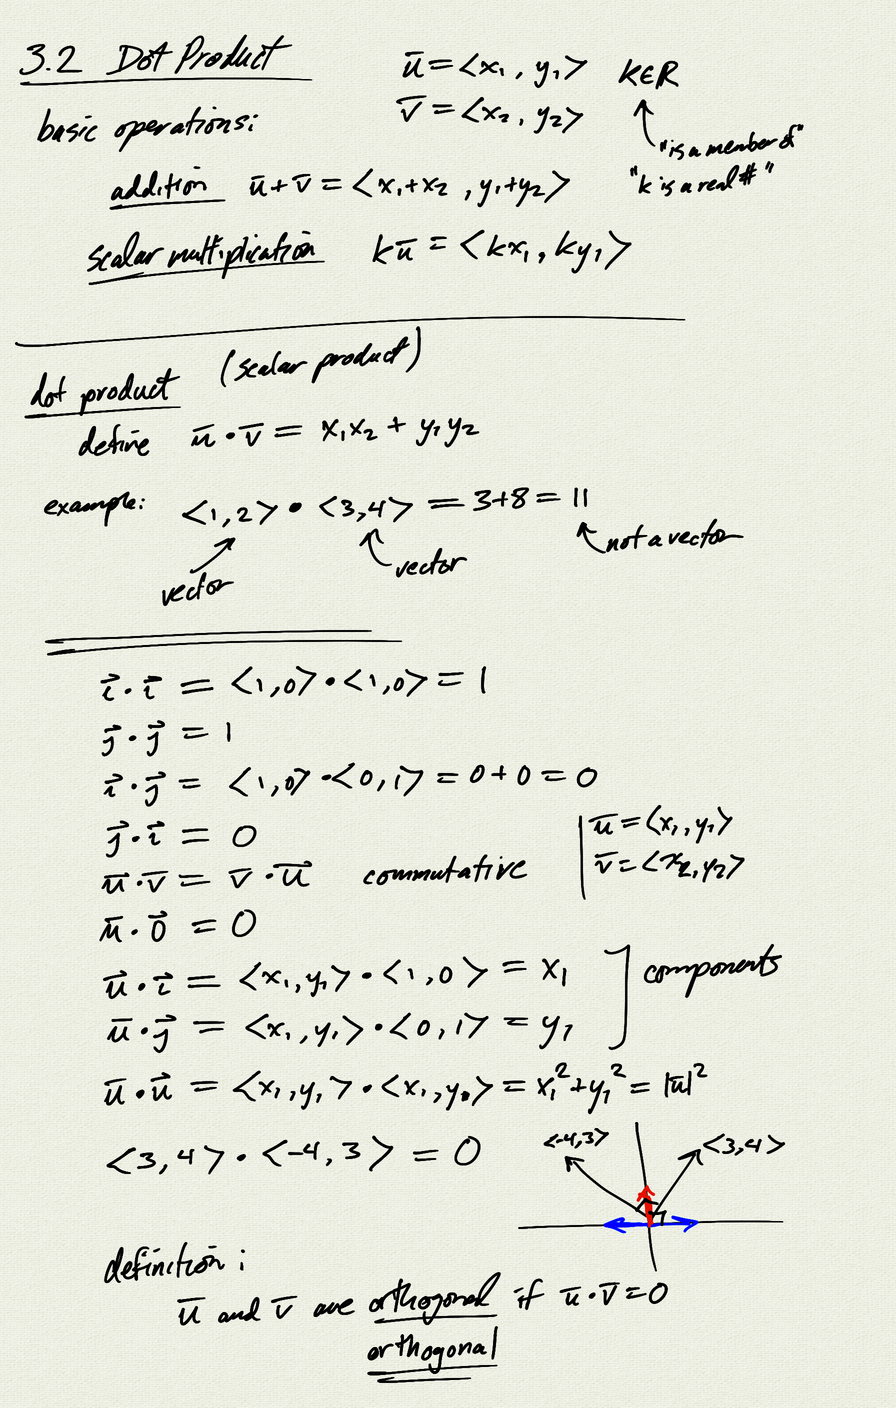 3.2 Dot Product
ū = <x₁, y₁> k∈R
v̄ = <x₂, y₂>
basic operations:
"is a member of"
"k is a real #"
addition ū+v̄ = <x₁+x₂, y₁+y₂>
scalar multiplication kū = <kx₁, ky₁>
dot product (scalar product)
define ū·v̄ = x₁x₂ + y₁y₂
example: <1,2> • <3,4> = 3+8 = 11
vector vector not a vector
i⃗·i⃗ = <1,0>·<1,0> = 1
j⃗·j⃗ = 1
i⃗·j⃗ = <1,0>·<0,1> = 0+0 = 0
j⃗·i⃗ = 0
ū = <x₁, y₁>
v̄ = <x₂, y₂>
ū·v̄ = v̄·ū commutative
ū·0⃗ = 0
ū·i⃗ = <x₁, y₁>·<1,0> = x₁
ū·j⃗ = <x₁, y₁>·<0,1> = y₁
components
ū·ū = <x₁, y₁>·<x₁, y₁> = x₁²+y₁² = |ū|²
<3,4>·<-4,3> = 0
<-4,3> <3,4>
definition:
ū and v̄ are orthogonal if ū·v̄ = 0
orthogonal